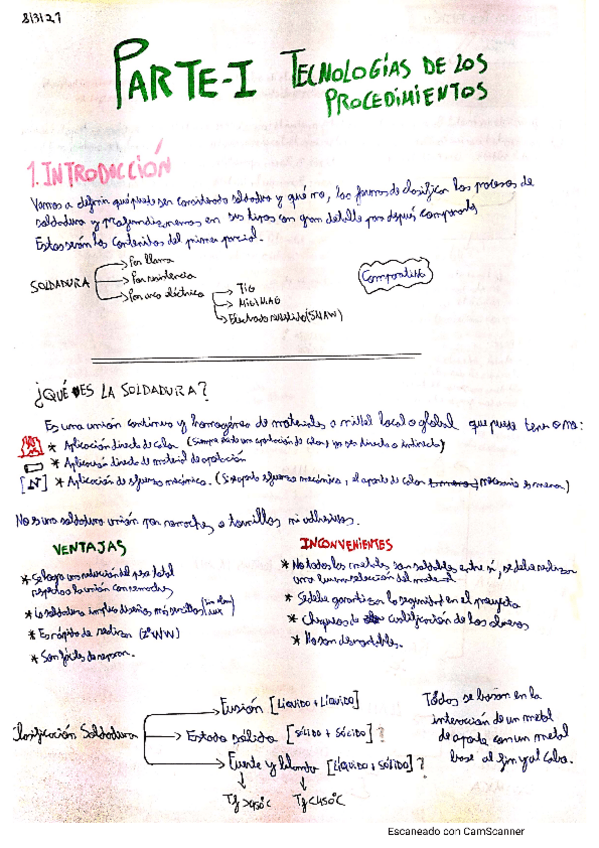 8/3/21
PARTE-I TECNOLOGÍAS DE LOS
PROCEDIMIENTOS
1. INTRODUCCIÓN
Vamos a definir qué puede ser considerado soldadura y qué no, las formas de clasificar los procesos de
soldadura y profundizaremos en sus tipos con gran detalle para después compararlos
Estos serán los contenidos del primer parcial.
SOLDADURA
Por llama
Por resistencia
Por arco eléctrico
TIG
MIG/MAG
Electrodo revestido (SMAW)
Comparativa
¿QUÉ ES LA SOLDADURA?
Es una unión continua y homogénea de materiales a nivel local o global que puede tener o no:
* Aplicación directa de calor (Siempre existe una aportación de calor, ya sea directa o indirecta)
* Aplicación directa de material de aportación
[N] * Aplicación de esfuerzo mecánico. (Si aporto esfuerzo mecánico, el aporte de calor necesario es menor)
No es una soldadura unión por remaches o tornillos ni adhesivos.
VENTAJAS
* Se logra una reducción del peso total
respecto a la unión con remaches
* La soldadura implica diseños más sencillos
* Es rápido de realizar (2ª WW)
* Son fáciles de reparar.
INCONVENIENTES
* No todos los metales son soldables entre sí, se debe realizar
una buena selección del material.
* Se debe garantizar la seguridad en el proyecto
* Chequeos de cualificación de los obreros
* No son desmontables.
Clasificación Soldadura
Fusión [Líquido + Líquido]
Estado sólido [SÓLIDO + SÓLIDO]?
Fuerte y blanda [LÍQUIDO + SÓLIDO]?
Tf >450°C Tf <450°C
Todos se basan en la
interacción de un metal
de aporte con un metal
base al fin y al cabo.
Escaneado con CamScanner